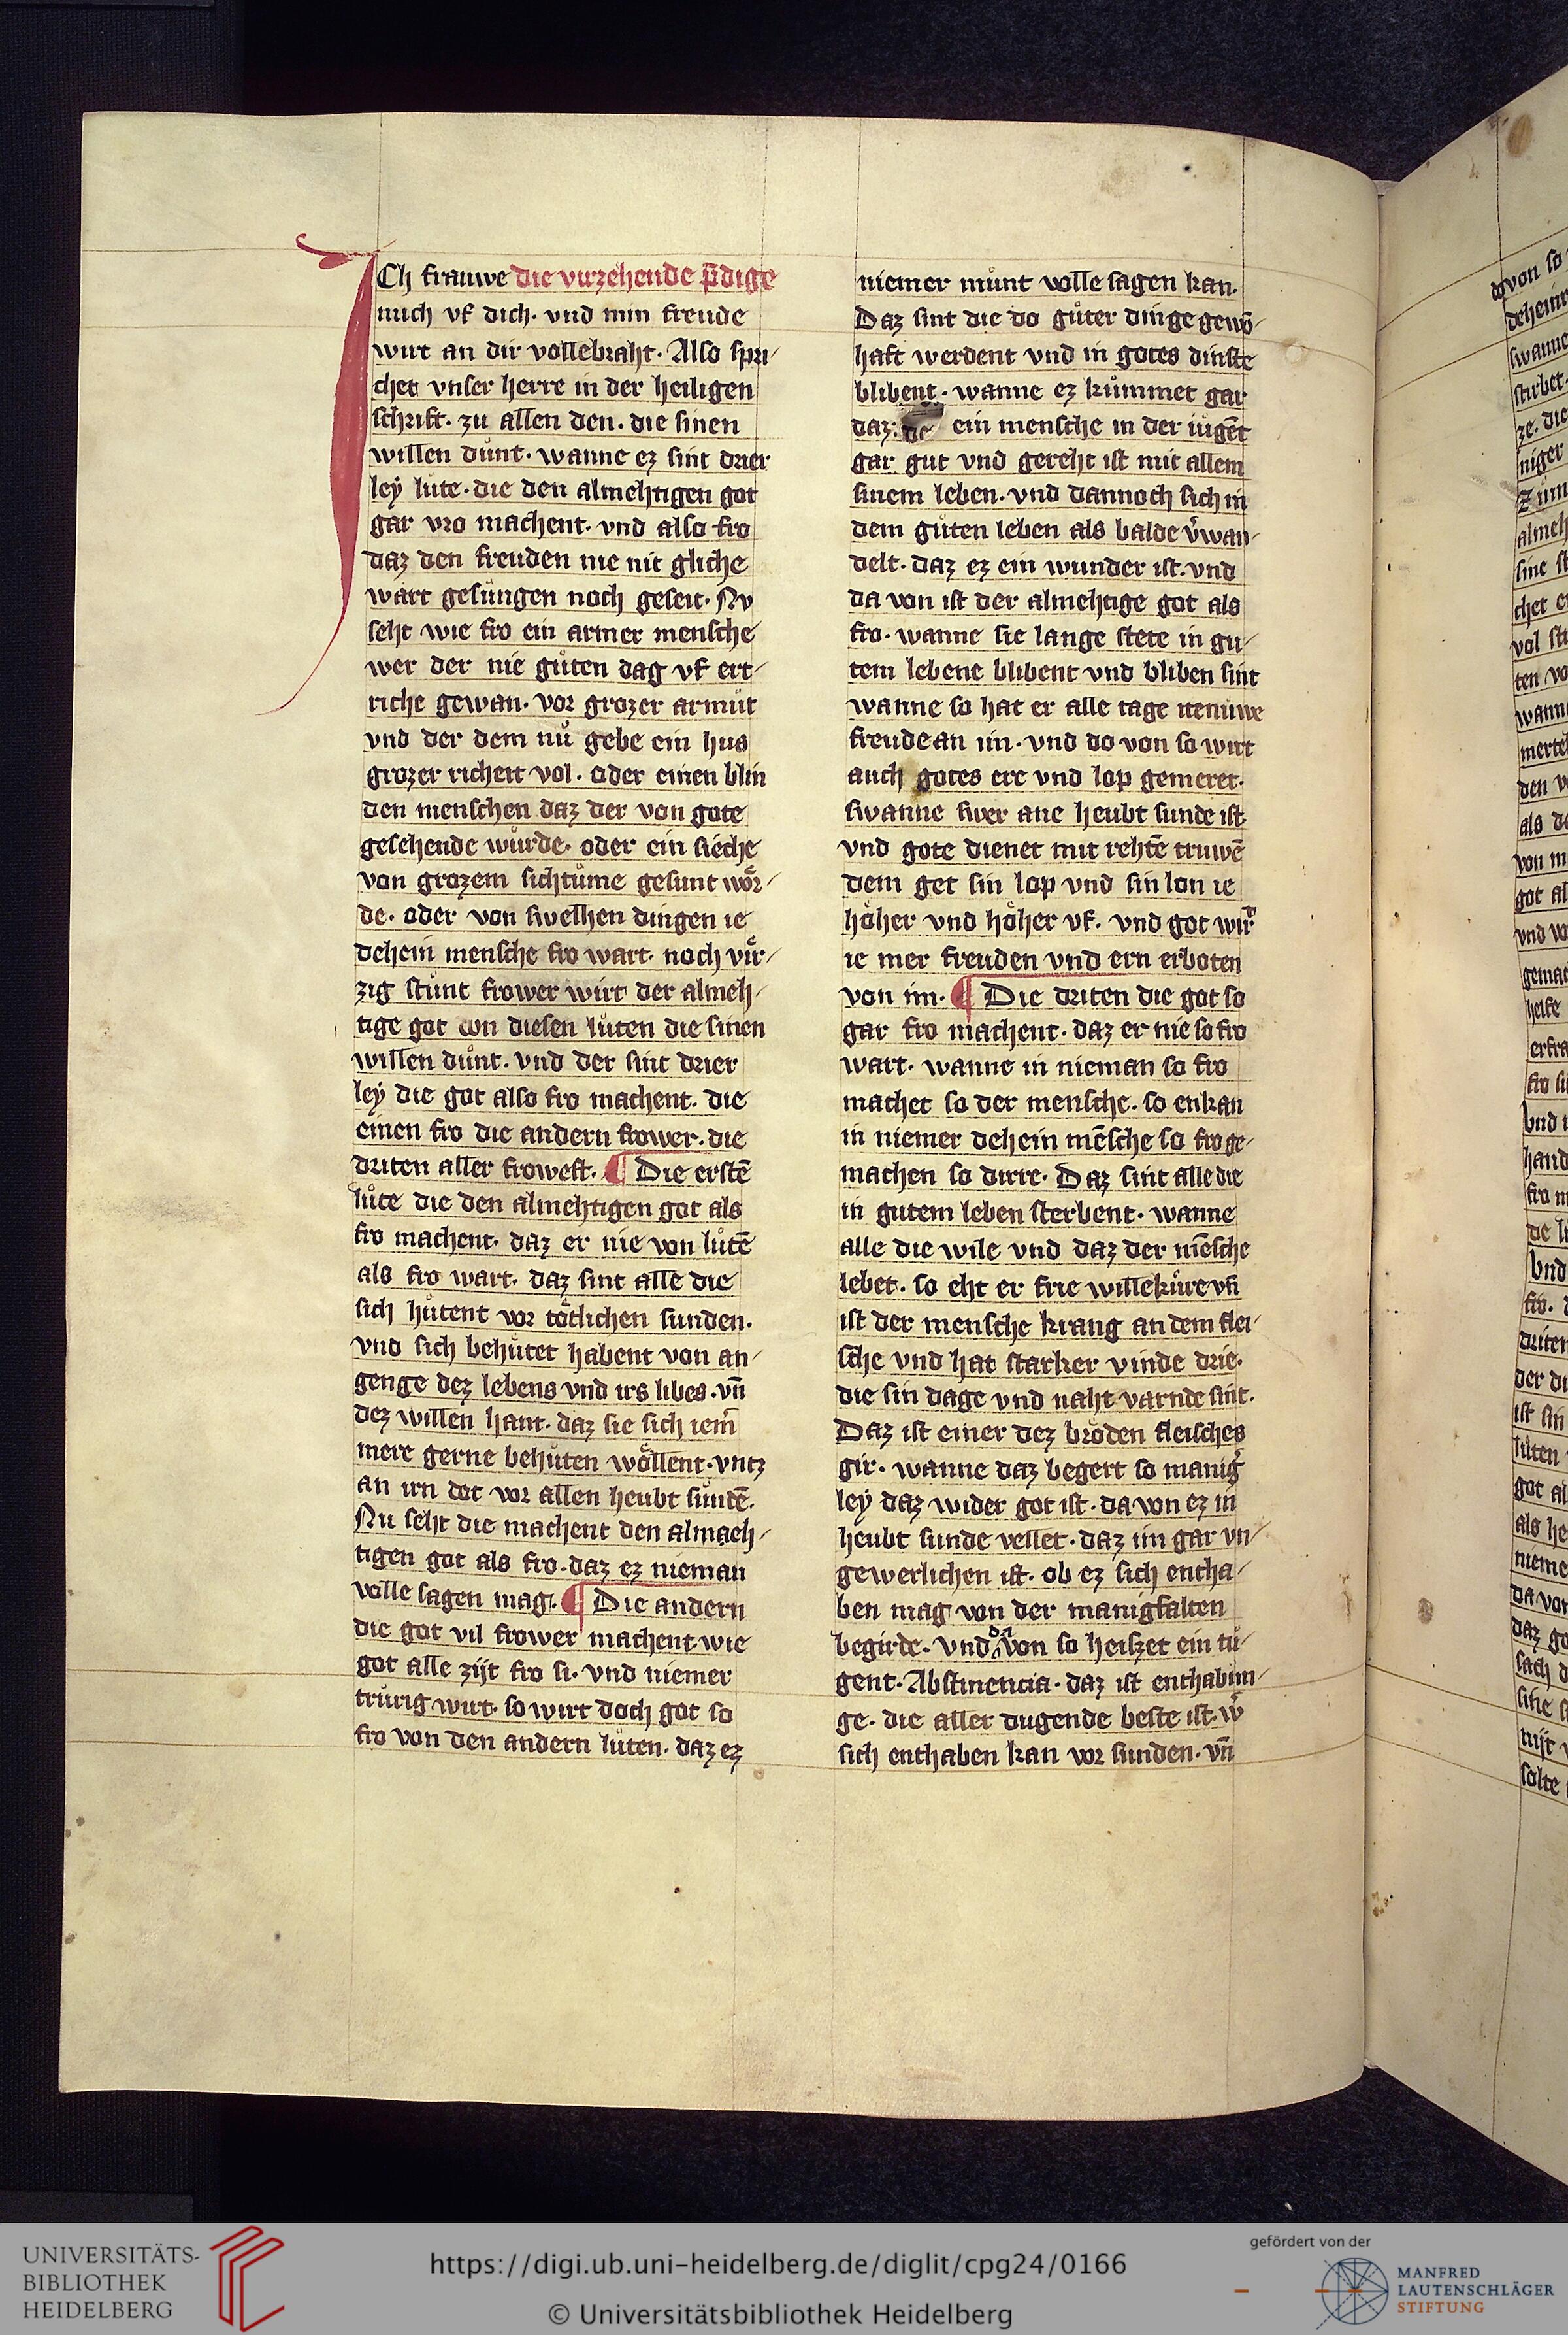 ICh frauwe die virzehende p̄dige
mich vf dich. vnd min freude
wirt an dir vollebraht. Also spri-
chet vnser herre in der heiligen
schrift. zu allen den. die sinen
willen důnt. wanne ez sint drier
leÿ lute. die den almehtigen got
gar vro machent. vnd also fro
daz den freuden nie nit gliche
wart gesůngen noch geseit. Nv
seht wie fro ein armer mensche
wer der nie gůten dag vf ert-
riche gewan. vor grozer armůt
vnd der dem nů gebe ein hus
grozer richeit vol. oder einen blin
den menschen daz der von gote
gesehende wůrde. oder ein sieche
von grozem sichtůme gesunt wo̊r-
de. oder von swelhen dingen ie
dehein mensche fro wart. noch vir-
zig stůnt frower wirt der almeh-
tige got von diesen lůten die sinen
willen důnt. vnd der sint drier
leÿ die got also fro machent. die
einen fro die andern frower. die
driten aller frowest. ¶ Die erstē
lůte die den almehtigen got als
fro machent. daz er nie von lůtē
als fro wart. daz sint alle die
sich hůtent vor to̊tlichen sunden.
vnd sich behůtet habent von an-
genge dez lebens vnd irs libes. vn̄
dez willen hant. daz sie sich iem̄
mere gerne behůten wo̊llent. vntz
an irn dot vor allen heubt sůndē.
Nu seht die machent den almaeh-
tigen got als fro. daz ez nieman
volle sagen mag. ¶ Die andern
die got vil frower machent. wie
got alle zijt fro si. vnd niemer
trůrig wirt. so wirt doch got so
fro von den andern lůten. daz ez
niemer můnt volle sagen kan.
Daz sint die do gůter dinge gewō-
haft werdent vnd in gotes dinste
blibent. wanne ez kůmmet gar
daz: de ein mensche in der iůgēt
gar gut vnd gereht ist mit allem
sinem leben. vnd dannoch sich in
dem gůten leben als balde v̓wan-
delt. daz ez ein wunder ist. vnd
da von ist der almehtige got als
fro. wanne sie lange stete in gu-
tem lebene blibent vnd bliben sint
wanne so hat er alle tage itenůwe
freude an im. vnd do von so wirt
auch gotes ere vnd lop gemeret.
swanne swer ane heubt sunde ist
vnd gote dienet mit rehtē truwē
dem get sin lop vnd sin lon ie
ho̊her vnd ho̊her vf. vnd got wirt
ie mer freuden vnd ern erboten
von im. ¶ Die driten die got so
gar fro machent. daz er nie so fro
wart. wanne in nieman so fro
machet so der mensche. so enkan
in niemer dehein mēsche so fro ge-
machen so dirre. Daz sint alle die
in gutem leben sterbent. wanne
alle die wile vnd daz der mēsche
lebet. so eht er frie willekůre vn̄
ist der mensche krang an dem flei-
sche vnd hat starker vinde drie.
die sin dage vnd naht varnde sint.
Daz ist einer dez bro̊den fleisches
gir. wanne daz begert so manig̓
leÿ daz wider got ist. da von ez in
heubt sunde vellet. daz im gar vn-
gewerlichen ist. ob ez sich entha-
ben mag von der manigfalten
begirde. vnd da von so heiszet ein tů-
gent. Abstinencia. daz ist enthabun-
ge. die aller dugende beste ist. w̓
sich enthaben kan vor sunden. vn̄
UNIVERSITÄTS-
BIBLIOTHEK
HEIDELBERG
https://digi.ub.uni-heidelberg.de/diglit/cpg24/0166
© Universitätsbibliothek Heidelberg
gefördert von der
MANFRED
LAUTENSCHLÄGER
STIFTUNG